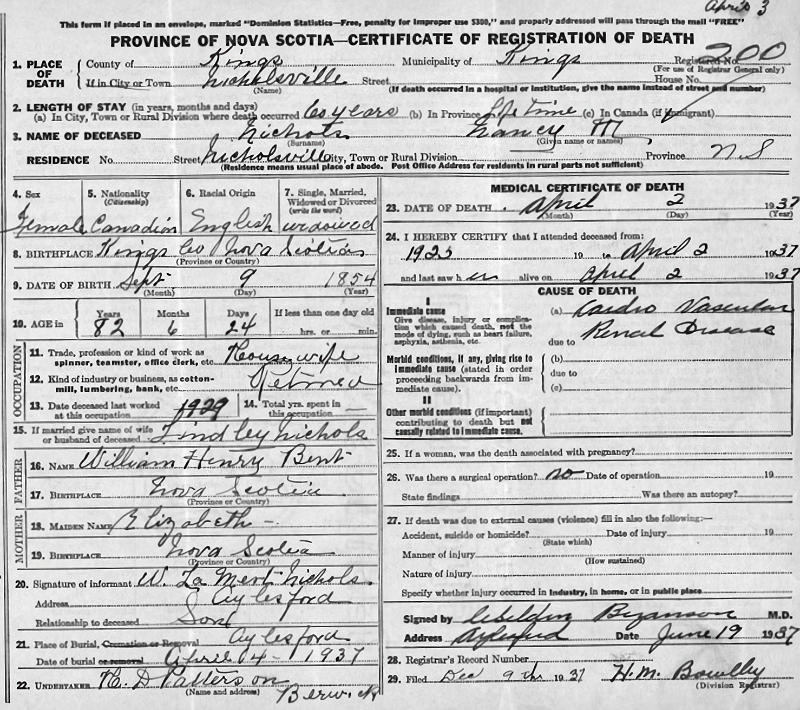 April 3
This form if placed in an envelope, marked "Dominion Statistics—Free, penalty for improper use $300," and properly addressed will pass through the mail "FREE"
PROVINCE OF NOVA SCOTIA—CERTIFICATE OF REGISTRATION OF DEATH
1. PLACE OF DEATH County of Kings Municipality of Kings Registered No. 200
(For use of Registrar General only)
If in City or Town Nicholsville Street House No.
(Name) (If death occurred in a hospital or institution, give the name instead of street and number)
2. LENGTH OF STAY (in years, months and days)
(a) In City, Town or Rural Division where death occurred 60 years (b) In Province Life Time (c) In Canada (if immigrant)
3. NAME OF DECEASED Nichols Nancy M
(Surname) (Given name or names)
RESIDENCE No. Street Nicholsville City, Town or Rural Division Province N.S
(Residence means usual place of abode. Post Office Address for residents in rural parts not sufficient)
4. Sex 5. Nationality (Citizenship) 6. Racial Origin 7. Single, Married, Widowed or Divorced (write the word)
Female Canadian English widowed
8. BIRTHPLACE Kings Co Nova Scotia
(Province or Country)
9. DATE OF BIRTH Sept 9 1854
(Month) (Day) (Year)
10. AGE in Years Months Days If less than one day old
82 6 24 hrs. or min.
OCCUPATION
11. Trade, profession or kind of work as spinner, teamster, office clerk, etc. Housewife
12. Kind of industry or business, as cotton-mill, lumbering, bank, etc. Retired
13. Date deceased last worked at this occupation 1929 14. Total yrs. spent in this occupation —
15. If married give name of wife or husband of deceased Lindley Nichols
FATHER
16. NAME William Henry Bent
17. BIRTHPLACE Nova Scotia
(Province or Country)
MOTHER
18. MAIDEN NAME Elizabeth —
19. BIRTHPLACE Nova Scotia
(Province or Country)
20. Signature of informant W. La Mert Nichols
Address Aylesford
Relationship to deceased Son
21. Place of Burial, Cremation or Removal Aylesford
Date of burial or removal April 4 - 1937
22. UNDERTAKER H. D Patterson
(Name and address) Berwick
MEDICAL CERTIFICATE OF DEATH
23. DATE OF DEATH April 2 1937
(Month) (Day) (Year)
24. I HEREBY CERTIFY that I attended deceased from:
1925 19 to April 2 1937
and last saw her alive on April 2 1937
CAUSE OF DEATH
I
Immediate cause (a) Cardio Vascular
Give disease, injury or complication which caused death, not the mode of dying, such as heart failure, asphyxia, asthenia, etc. due to Renal Disease
Morbid conditions, if any, giving rise to immediate cause (stated in order proceeding backwards from immediate cause). (b)
due to
(c)
II
Other morbid conditions (if important) contributing to death but not causally related to immediate cause.
25. If a woman, was the death associated with pregnancy?
26. Was there a surgical operation? no Date of operation 19
State findings Was there an autopsy?
27. If death was due to external causes (violence) fill in also the following:—
Accident, suicide or homicide? Date of injury 19
(State which)
Manner of injury
(How sustained)
Nature of injury
Specify whether injury occurred in industry, in home, or in public place
Signed by Bezanson M.D.
Address Aylesford Date June 19 1937
28. Registrar's Record Number
29. Filed Dec 9 th 1937 H.M. Bowlby
(Division Registrar)